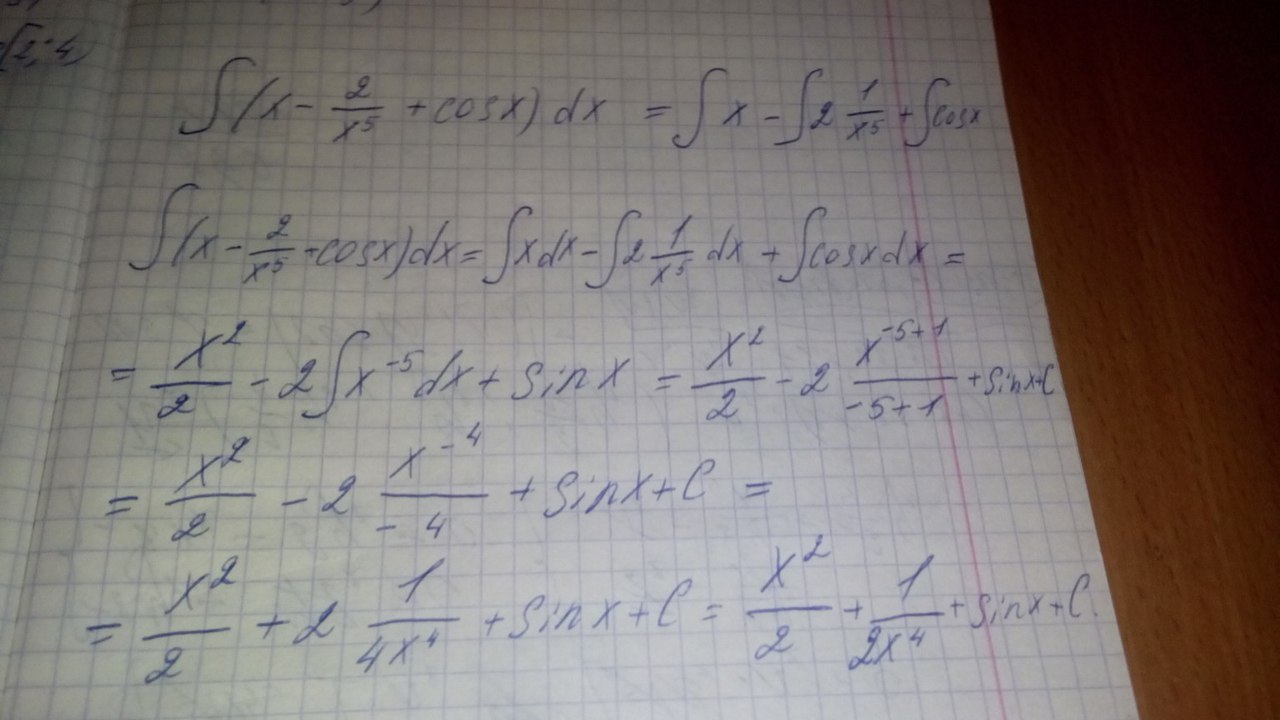 [2; 4
∫(x - 2/x⁵ + cosx) dx = ∫x - ∫2 1/x⁵ + ∫cosx
∫(x - 2/x⁵ + cosx)dx = ∫xdx - ∫2 1/x⁵ dx + ∫cosxdx =
= x²/2 - 2∫x⁻⁵dx + sinx = x²/2 - 2 x⁻⁵⁺¹/-5+1 + sinx+C
= x²/2 - 2 x⁻⁴/-4 + sinx+C =
= x²/2 + 2 1/4x⁴ + sinx+C = x²/2 + 1/2x⁴ + sinx+C.